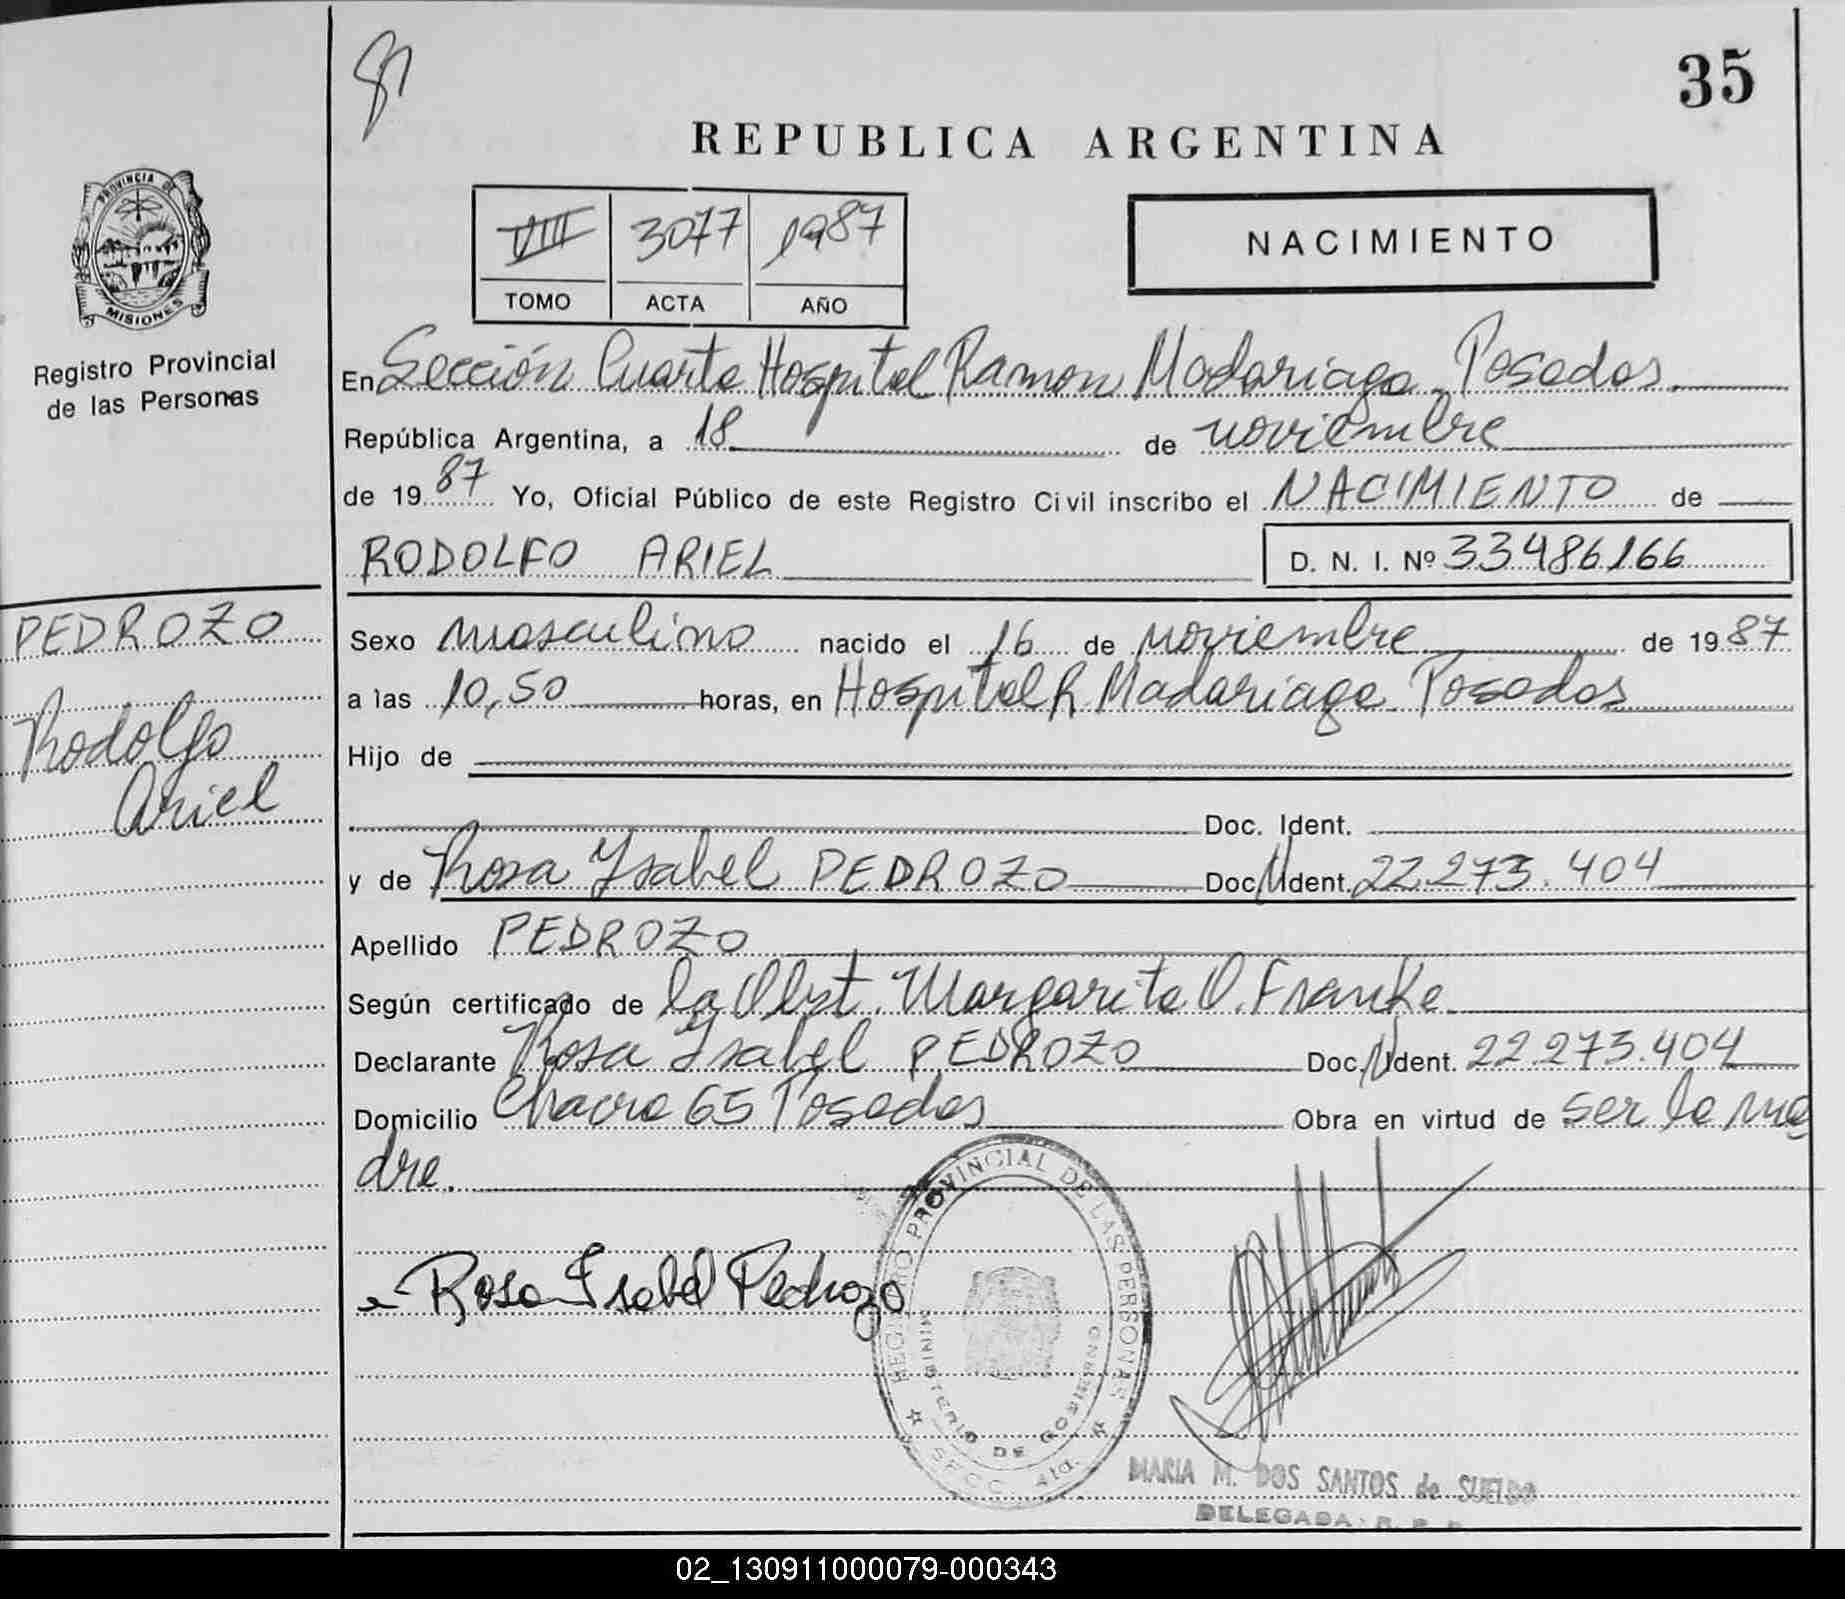 35
REPUBLICA ARGENTINA
PROVINCIA DE
MISIONES
Registro Provincial
de las Personas
VIII 3077 1987
TOMO ACTA AÑO
NACIMIENTO
En Sección Cuarta Hospital Ramon Madariaga Posadas
República Argentina, a 18 de noviembre
de 19 87 Yo, Oficial Público de este Registro Civil inscribo el NACIMIENTO de
RODOLFO ARIEL D. N. I. Nº 33486166
PEDROZO
Rodolfo
Ariel
Sexo masculino nacido el 16 de noviembre de 19 87
a las 10,50 horas, en Hospital R Madariaga Posadas
Hijo de
Doc. Ident.
y de Rosa Ysabel PEDROZO Doc. Ident. 22.273.404
Apellido PEDROZO
Según certificado de la Obst. Margarita O. Franke
Declarante Rosa Ysabel PEDROZO Doc. Ident. 22.273.404
Domicilio Chacra 65 Posadas Obra en virtud de ser la ma
dre.
Rosa Isabel Pedrozo
REGISTRO PROVINCIAL DE LAS PERSONAS
MINISTERIO DE GOBIERNO
SECC. 4ta.
MARIA M. DOS SANTOS de SUELDO
DELEGADA R. P. P.
02_130911000079-000343